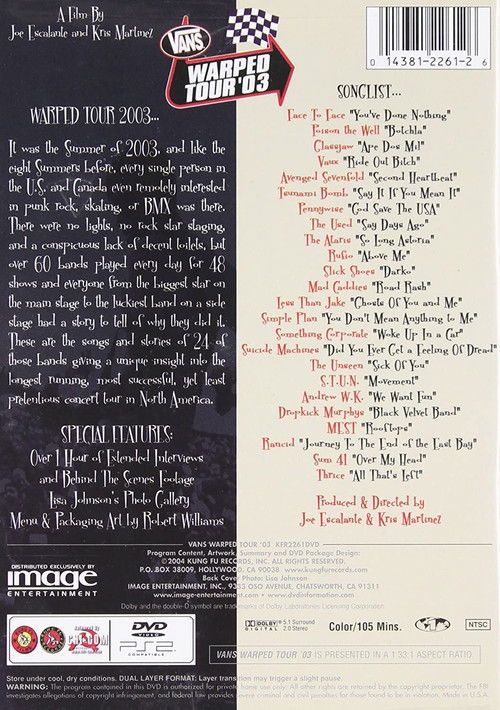 A Film By
Joe Escalante and Kris Martinez
VANS
WARPED
TOUR '03
0 14381-2261-2 6
WARPED TOUR 2003...
It was the Summer of 2003, and like the
eight Summers before, every single person in
the U.S. and Canada even remotely interested
in punk rock, skating, or BMX was there.
There were no lights, no rock star staging,
and a conspicuous lack of decent toilets, but
over 60 bands played every day for 48
shows and everyone from the biggest star on
the main stage to the luckiest band on a side
stage had a story to tell of why they did it.
These are the songs and stories of 24 of
those bands giving a unique insight into the
longest running, most successful, yet least
pretentious concert tour in North America.
SPECIAL FEATURES:
Over 1 Hour of Extended Interviews
and Behind The Scenes Footage
Lisa Johnson's Photo Gallery
Menu & Packaging Art by Robert Williams
SONGLIST...
Face To Face "You've Done Nothing"
Poison the Well "Botchla"
Glassjaw "Ape Dos Mil"
Vaux "Ride Out Bitch"
Avenged Sevenfold "Second Heartbeat"
Tsunami Bomb "Say It If You Mean It"
Pennywise "God Save The USA"
The Used "Say Days Ago"
The Ataris "So Long Astoria"
Rufio "Above Me"
Slick Shoes "Darko"
Mad Caddies "Road Rash"
Less Than Jake "Ghosts Of You and Me"
Simple Plan "You Don't Mean Anything to Me"
Something Corporate "Woke Up In a Car"
Suicide Machines "Did You Ever Get a Feeling Of Dread"
The Unseen "Sick Of You"
S.T.U.N. "Movement"
Andrew W.K. "We Want Fun"
Dropkick Murphys "Black Velvet Band"
MEST "Rooftops"
Rancid "Journey To The End of the East Bay"
Sum 41 "Over My Head"
Thrice "All That's Left"
Produced & Directed by
Joe Escalante & Kris Martinez
VANS WARPED TOUR '03 KFR2261DVD
Program Content, Artwork, Summary and DVD Package Design:
©2004 KUNG FU RECORDS, INC. ALL RIGHTS RESERVED.
P.O. BOX 38009, HOLLYWOOD, CA 90038 www.kungfurecords.com
Back Cover Photo: Lisa Johnson
IMAGE ENTERTAINMENT, INC., 9333 OSO AVENUE, CHATSWORTH, CA 91311
www.image-entertainment.com • www.dvdinformation.com
Dolby and the double-D symbol are trademarks of Dolby Laboratories Licensing Corporation.
DISTRIBUTED EXCLUSIVELY BY
image
ENTERTAINMENT
DVD
VIDEO
PS2
COMPATIBLE
DOLBY
DIGITAL
5.1 Surround
2.0 Stereo
Color/105 Mins.
NTSC
VANS WARPED TOUR '03 IS PRESENTED IN A 1.33:1 ASPECT RATIO
Store under cool, dry conditions. DUAL LAYER FORMAT: Layer transition may trigger a slight pause.
WARNING: The program contained in this DVD is authorized for private home use only. All other rights are reserved by the copyright proprietor. The FBI
investigates allegations of copyright infringement, and federal law provides severe civil and criminal penalties for those found to be in violation. Made in U.S.A.